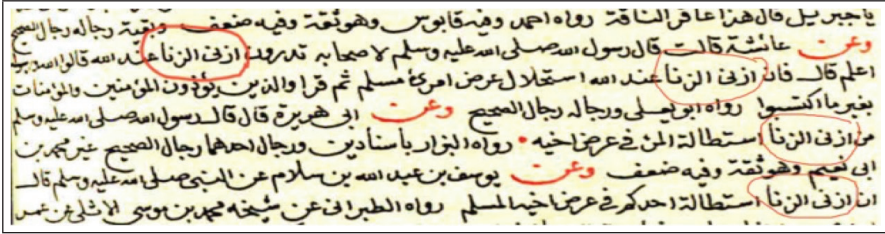 يا جبريل قال هذا عاقر الناقة رواه احمد وفيه قابوس وهو ثقة وفيه ضعف وبقية رجاله رجال الصحيح
وعن عائشة قالت قال رسول الله صلى الله عليه وسلم لاصحابه تدرون ازنى الزنا عند الله قالوا الله ورسوله
اعلم قال فان ازنى الزنا عند الله استحلال عرض امرئ مسلم ثم قرا والذين يؤذون المؤمنين والمؤمنات
بغير ما اكتسبوا رواه ابو يعلى ورجاله رجال الصحيح وعن ابى هريرة قال قال رسول الله صلى الله عليه وسلم
من ازنى الزنا استطالة المرء فى عرض اخيه رواه البزار باسنادين ورجال احدهما رجال الصحيح غير محمد بن
ابى نعيم وهو ثقة وفيه ضعف وعن يوسف بن عبد الله بن سلام عن النبى صلى الله عليه وسلم قال
ان ازنى الزنا استطالة احدكم فى عرض اخيه المسلم رواه الطبرانى عن شيخه محمد بن موسى الاثلى عن عمر